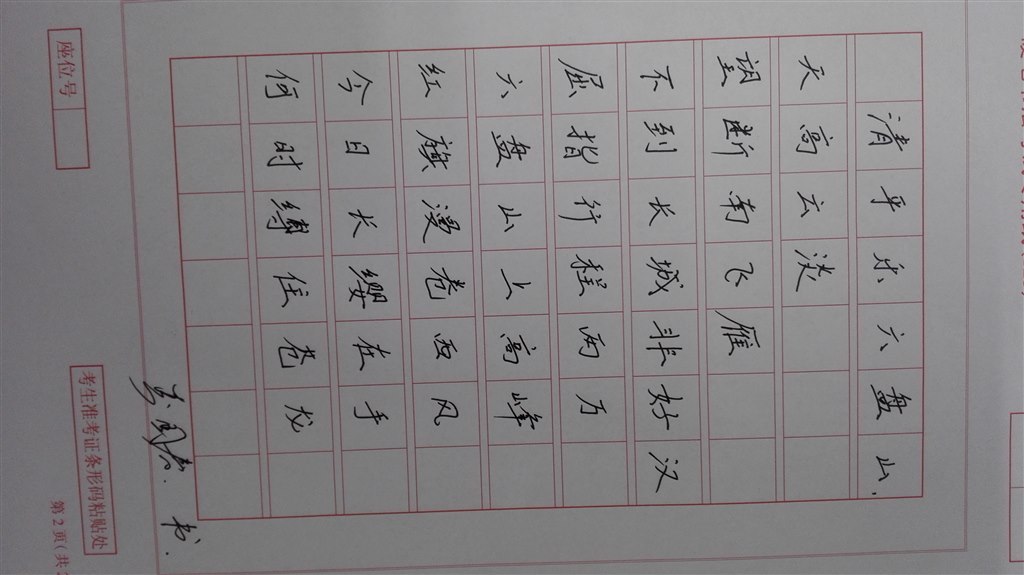 清平乐六盘山
天高云淡
望断南飞雁
不到长城非好汉
屈指行程两万
六盘山上高峰
红旗漫卷西风
今日长缨在手
何时缚住苍龙
书
座位号
考生准考证条形码粘贴处
第2页(共